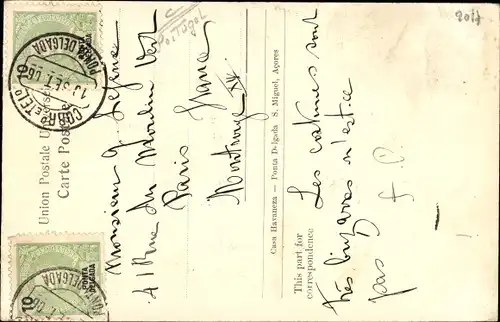 Union Postale Universelle
Carte Postale
CORRº E TELº
PONTA DELGADA
10
PONTA
DELGADA
10
PONTA
DELGADA
Portugal
2017
Monsieur J.
41 Rue du Moulin Vert
Paris
Montrouge XIV
France
Casa Havaneza — Ponta Delgada S. Miguel, Açores
This part for
correspondence
Les costumes sont
très bizarres n'est-ce
pas